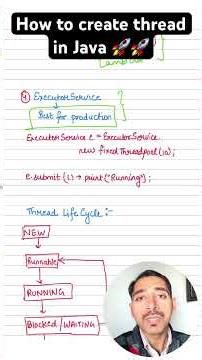 How to create thread
in Java 🚀🚀
Lambda
④ ExecutorService
Best for production
ExecutorService e = ExecutorService.
new fixedThreadpool(10);
e.submit(() → print("Running");
Thread LifeCycle:-
NEW
Runnable
RUNNING
Blocked/WAITING